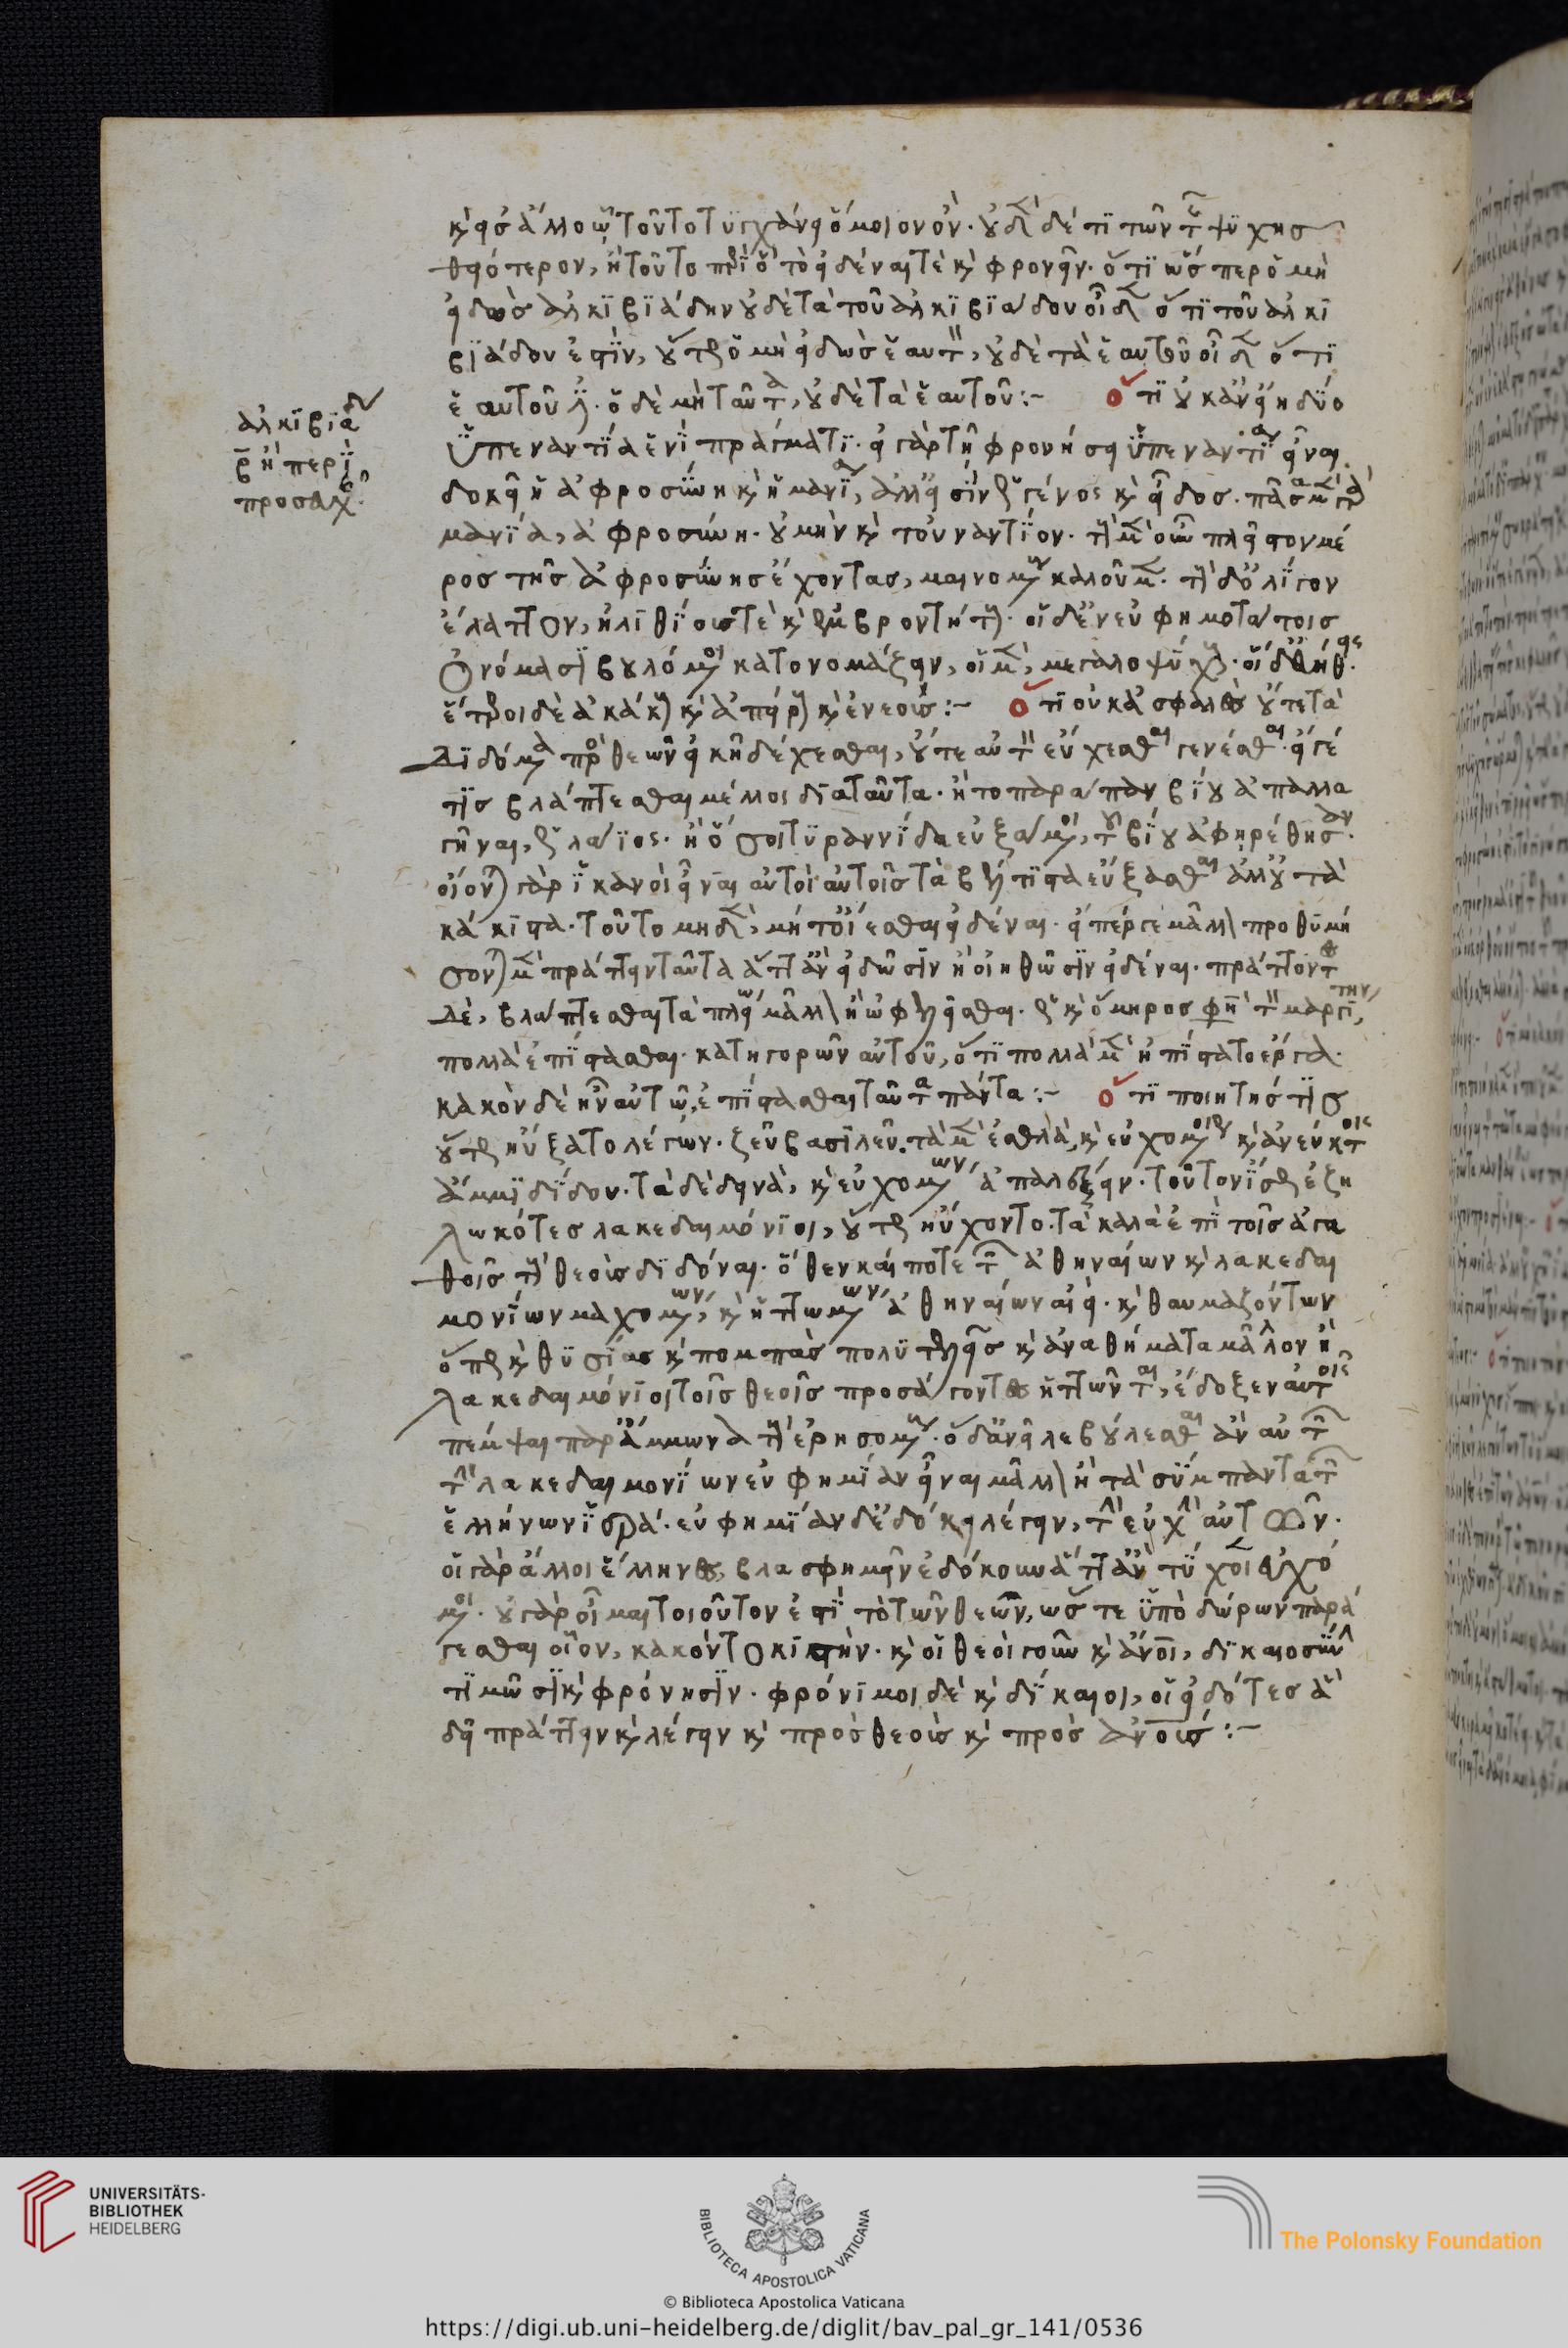 κὶ εἰς ἄλλο ᾧ τοῦτο τυγχάνει ὅμοιον ὄν. οὐδὲ δέ τι τῶν τῆς ψυχῆς
θειότερον, ἢ τοῦτο περὶ ὃ τὸ εἰδέναι τὲ κὶ φρονεῖν. ὅτι ὥσπερ ὁ μὴ
εἰδὼς ἀλκιβιάδην οὐδὲ τὰ τοῦ ἀλκιβιάδου οἶδεν ὅτι τοῦ ἀλκι
βιάδου ἐστὶν, οὕτως ὁ μὴ εἰδὼς ἑαυτὸν, οὐδὲ τὰ ἑαυτοῦ οἶδεν ὅτι
ἑαυτοῦ ἐστίν. ὁ δὲ μὴ ταῦτα, οὐδὲ τὰ ἑαυτοῦ :- ὅτι οὐκ ἂν εἴη δύο
ἀλκιβιάδου
β ἢ περὶ
προσευχῆς
ὑπεναντία ἑνὶ πράγματι. εἰ γὰρ τῇ φρονήσει ὑπεναντία εἶναι
δοκεῖ ἡ ἀφροσύνη κὶ ἡ μανία, ἀλλ' εἰσὶν ὡς γένος κὶ εἶδος. πᾶσα μὲν γὰρ
μανία, ἀφροσύνη. οὐ μὴν κὶ τοὐναντίον. τοὺς μὲν οὖν πλεῖστον μέ
ρος τῆς ἀφροσύνης ἔχοντας, μαινομένους καλοῦμεν. τοὺς δ' ὀλίγον
ἔλαττον, ἠλιθίους τὲ κὶ ἐμβροντήτους. οἱ δ' ἐν εὐφημοτάτοις
ὀνόμασι βουλόμενοι κατονομάζειν, οἱ μὲν, μεγαλοψύχους. οἱ δ' εὐήθεις.
ἕτεροι δὲ ἀκάκους κὶ ἀπείρους κὶ ἐνεούς :- ὅτι οὐκ ἀσφαλὲς οὔτε τὰ
διδόμενα παρὰ θεῶν εἰκῆ δέχεσθαι, οὔτε αὐτὸν εὔχεσθαι γενέσθαι. εἴ γέ
τις βλάπτεσθαι μέλλοι διὰ ταῦτα. ἢ τοπαράπαν βίου ἀπαλλα
γῆναι, ὡς λάϊος. ἢ ὅσοι τυραννίδα εὐξάμενοι, τοῦ βίου ἀφηρέθησαν.
οἴονται γὰρ ἱκανοὶ εἶναι αὐτοὶ αὑτοῖς τὰ βέλτιστα εὔξασθαι ἀλλ' οὐ τὰ
κάκιστα. τοῦτο μηδὲν, μήτ' οἴεσθαι εἰδέναι. εἴπερ γε μᾶλλον προθυμή
σονται μὲν πράττειν ταῦτα ἅττ' ἂν εἰδῶσιν ἢ οἰηθῶσιν εἰδέναι. πράττοντες
δὲ, βλάπτεσθαι τὰ πλείω μᾶλλον ἢ ὠφελεῖσθαι. ὡς κὶ ὅμηρος φησὶ τὸν μαργίτην,
πολλὰ ἐπίστασθαι. κατηγορῶν αὐτοῦ, ὅτι πολλὰ μὲν ἠπίστατο ἔργα.
κακὸν δὲ ἦν αὐτῷ ἐπίστασθαι ταῦτα πάντα :- ὅτι ποιητής τις
οὕτως ηὔξατο λέγων. ζεῦ βασιλεῦ. τὰ μὲν ἐσθλὰ, κὶ εὐχομένοις κὶ ἀνεύκτοις
ἄμμι δίδου. τὰ δὲ δεινὰ, κὶ εὐχομένων ἀπαλέξειν. τοῦτον ἴσως ἐζη
λωκότες λακεδαιμόνιοι, οὕτως ηὔχοντο. τὰ καλὰ ἐπὶ τοῖς ἀγα
θοῖς τοὺς θεοὺς διδόναι. ὅθεν καί ποτε τῶν ἀθηναίων κὶ λακεδαι
μονίων μαχομένων, κὶ ἡττωμένων ἀθηναίων αἰεί. κὶ θαυμαζόντων
ὅπως κὶ θυσίας κὶ πομπὰς πολυτελεῖς κὶ ἀναθήματα μᾶλλον ἢ
λακεδαιμόνιοι τοῖς θεοῖς προσάγοντες ἡττῶνται, ἔδοξεν αὐτοῖς
πέμψαι παρ' ἄμμωνα τοὺς ἐρησομένους. ὁ δ' ἀνεῖλε βούλεσθαι ἂν αὐτῶν
τὴν λακεδαιμονίων εὐφημίαν εἶναι μᾶλλον ἢ τὰ σύμπαντα τῶν
ἑλλήνων ἱερά. εὐφημίαν δ' ἐδόκει λέγειν, τὴν εὐχὴν αὐτῶν.
οἱ γὰρ ἄλλοι ἕλληνες, βλασφημεῖν ἐδόκουν ἅττ' ἂν τύχοι εὐχό
μενοι. οὐ γὰρ οἶμαι τοιοῦτον ἐστὶ τὸ τῶν θεῶν, ὥστε ὑπὸ δώρων παρά
γεσθαι οἷον, κακὸν τοκιστήν. κὶ οἱ θεοὶ γοῦν κὶ ἄνοι, δικαιοσύνην
τιμῶσι κὶ φρόνησιν. φρόνιμοι δὲ κὶ δίκαιοι, οἱ εἰδότες ἃ
δεῖ πράττειν κὶ λέγειν κὶ πρὸς θεοὺς κὶ πρὸς ἀνους :-
UNIVERSITÄTS-
BIBLIOTHEK
HEIDELBERG
BIBLIOTECA APOSTOLICA VATICANA
The Polonsky Foundation
© Biblioteca Apostolica Vaticana
https://digi.ub.uni-heidelberg.de/diglit/bav_pal_gr_141/0536